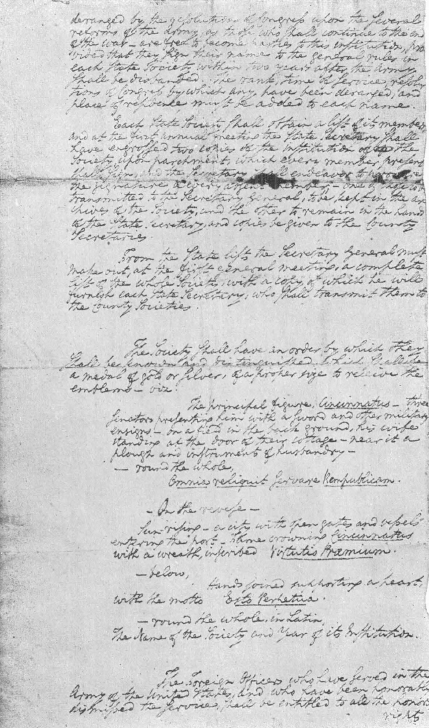 deranged by the resolutions of Congress upon the several
reforms of the army, as to all who shall continue to the end
of the war – are free to become parties to this Institution, pro
vided that they sign their name to the general rules in
each State Society within two years after the Army
shall be disbanded. The rank, time of service, resolu
tions of Congress by which any have been deranged, and
place of residence must be added to each name.
Each State Society shall obtain a list of its members
and at the first annual meeting the State Secretary shall
have engrossed two copies of the Institution of the
Society upon parchment, which every member present
shall sign, and the Secretary shall endeavor to procure
the signature of every absent member – one of those to
transmitted to the Secretary General, to be kept in the ar
chives of the Society, and the other to remain in the hands
of the State Secretary, and copies be given to the County
Secretaries
From the State lists the Secretary General must
make out, at the first general meeting, a complete
list of the whole Society, with a copy of which he will
furnish each State Secretary, who shall transmit them to
the County Societies.
The Society shall have an order by which
shall be known and distinguished, which shall be
a medal of gold or silver, of a proper size to receive the
emblems – viz.
The principal figure, Cincinnatus – three
Senators presenting him with a sword and other military
ensigns – on a field in the back ground, his wife
standing at the door of their cottage – near it a
plough and instruments of husbandry –
– round the whole,
Omnia reliquit Servare Rempublicam.
– On the reverse –
Sun rising – a city with open gates and vessels
entering the port – Fame crowning Cincinnatus
with a wreath, inscribed Virtutis Præmium.
– below,
Hands joined supporting a heart.
with the motto Esto Perpetua.
– round the whole, in Latin,
The Name of the Society and Year of its Institution.
The Foreign Officers who have served in the
Army of the United States, and who have been honorably
dismissed the service, shall be entitled to all the honors
rights